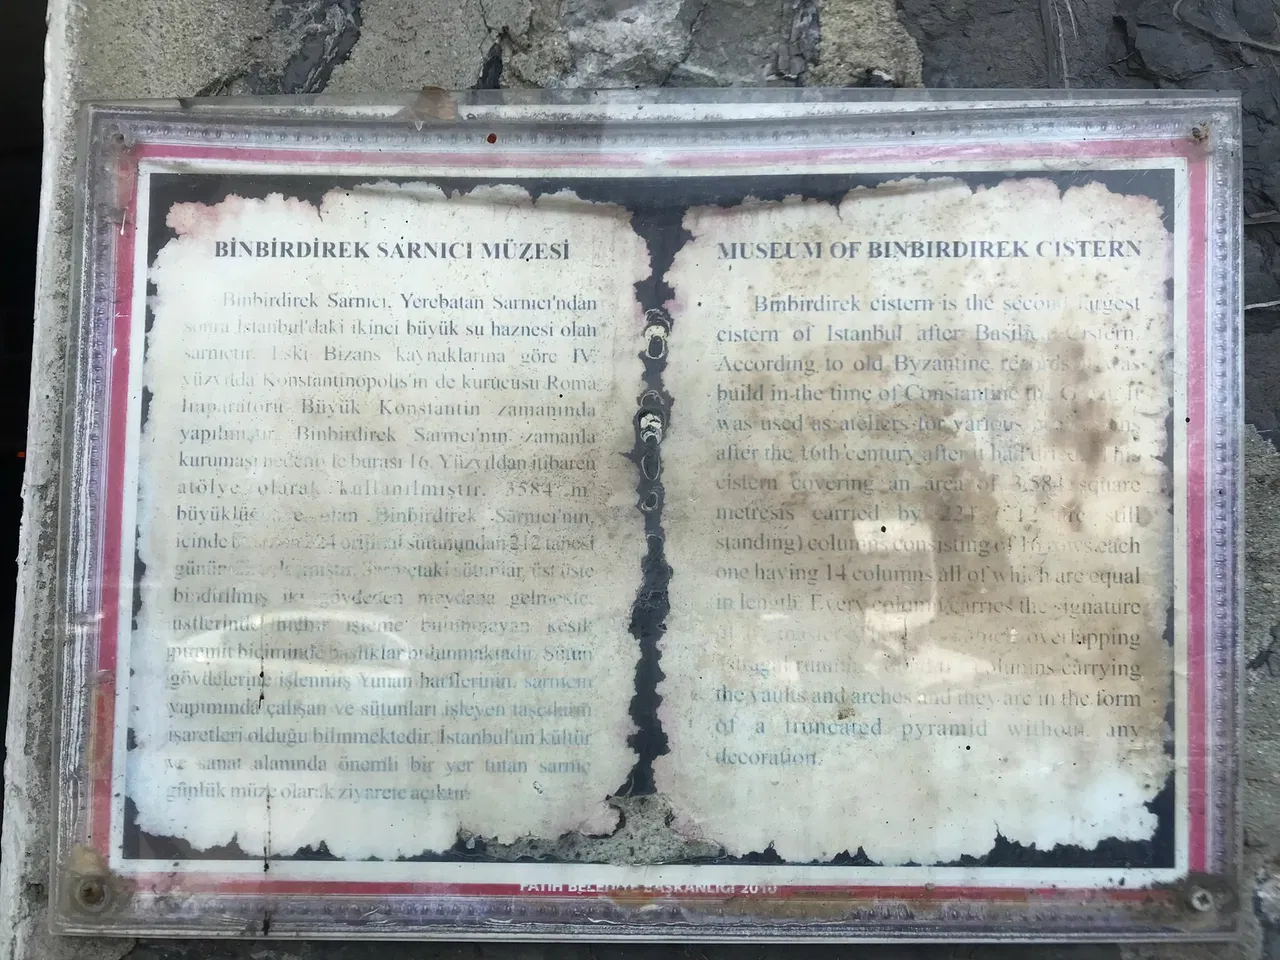 BİNBİRDİREK SARNICI MÜZESİ
Binbirdirek Sarnıcı, Yerebatan Sarnıcı'ndan
sonra İstanbul'daki ikinci büyük su haznesi olan
sarnıçtır. Eski Bizans kaynaklarına göre IV.
yüzyılda Konstantinopolis'in de kurucusu Roma
İmparatoru Büyük Konstantin zamanında
yapılmıştır. Binbirdirek Sarnıcı'nın zamanla
kuruması nedeniyle burası 16. Yüzyıldan itibaren
atölye olarak kullanılmıştır. 3584 m
olan Binbirdirek Sarnıcı'nın,
içinde 224 orijinal sütunundan 212 tanesi
sütunlar, üst üste
bindirilmiş iki gövdeden meydana gelmekte,
üstlerinde hiçbir işleme bulunmayan kesik
piramit biçiminde başlıklar bulunmaktadır. Sütun
gövdelerine işlenmiş Yunan harflerinin, sarnıcın
yapımında çalışan ve sütunları işleyen taşçıların
işaretleri olduğu bilinmektedir. İstanbul'un kültür
ve sanat alanında önemli bir yer tutan sarnıç
günlük müze olarak ziyarete açıktır.
MUSEUM OF BINBIRDIREK CISTERN
Binbirdirek cistern is the second largest
cistern of Istanbul after Basilica Cistern.
According to old Byzantine records it was
build in the time of Constantine the Great. It
was used as ateliers for various
after the 16th century after it had dried. This
cistern covering an area of 3,584 square
metresis carried by 224 (212 are still
standing) columns consisting of 16 rows each
one having 14 columns all of which are equal
in length. Every column carries the signature
of its master which overlapping
columns carrying
the vaults and arches and they are in the form
of a truncated pyramid without any
decoration.
FATİH BELEDİYE BAŞKANLIĞI 2010